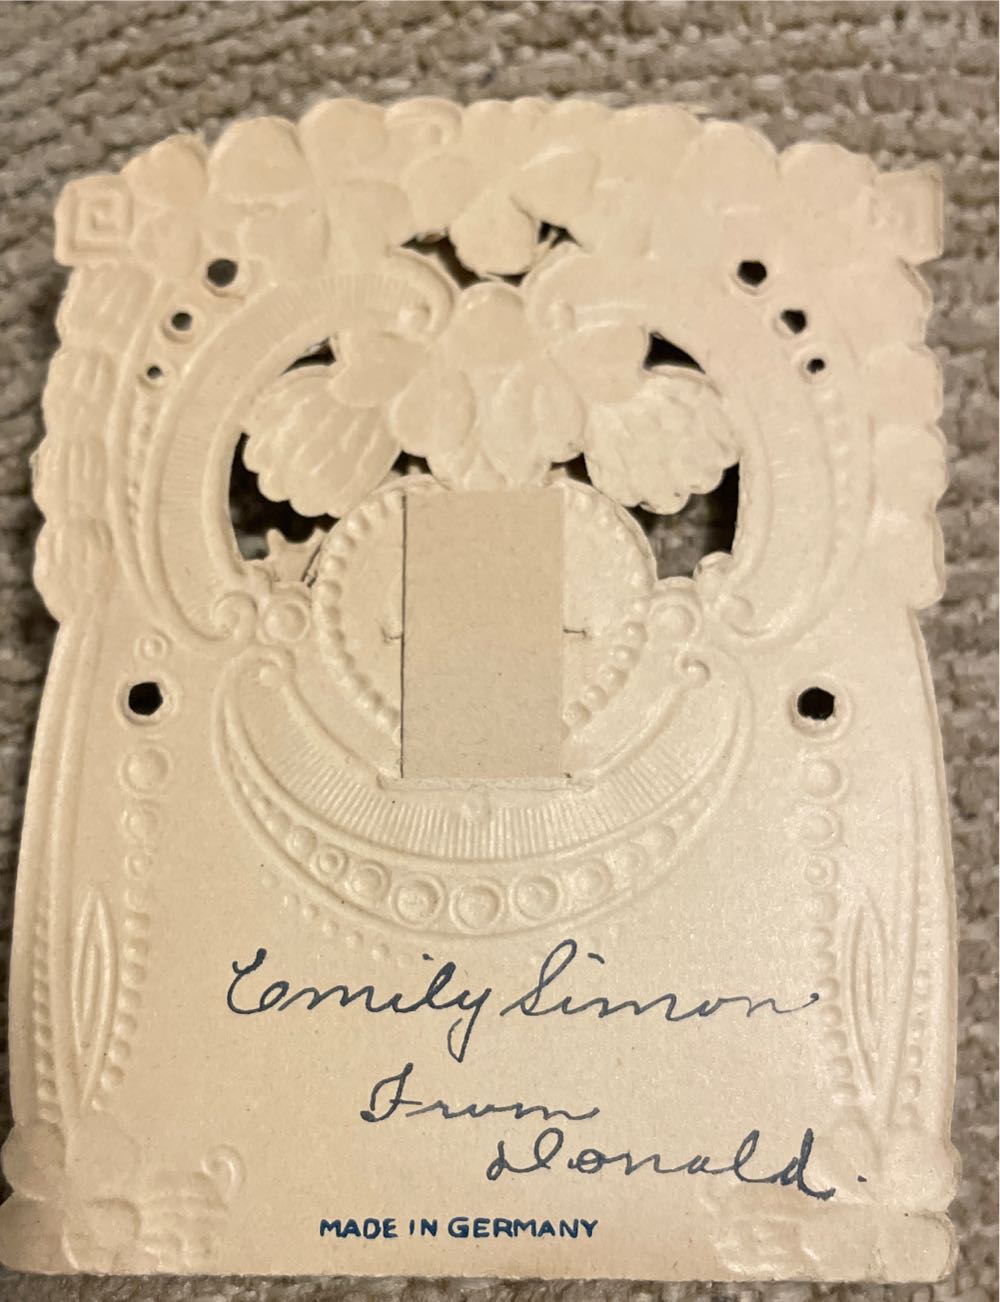 Emily Simon
From
Donald.
MADE IN GERMANY